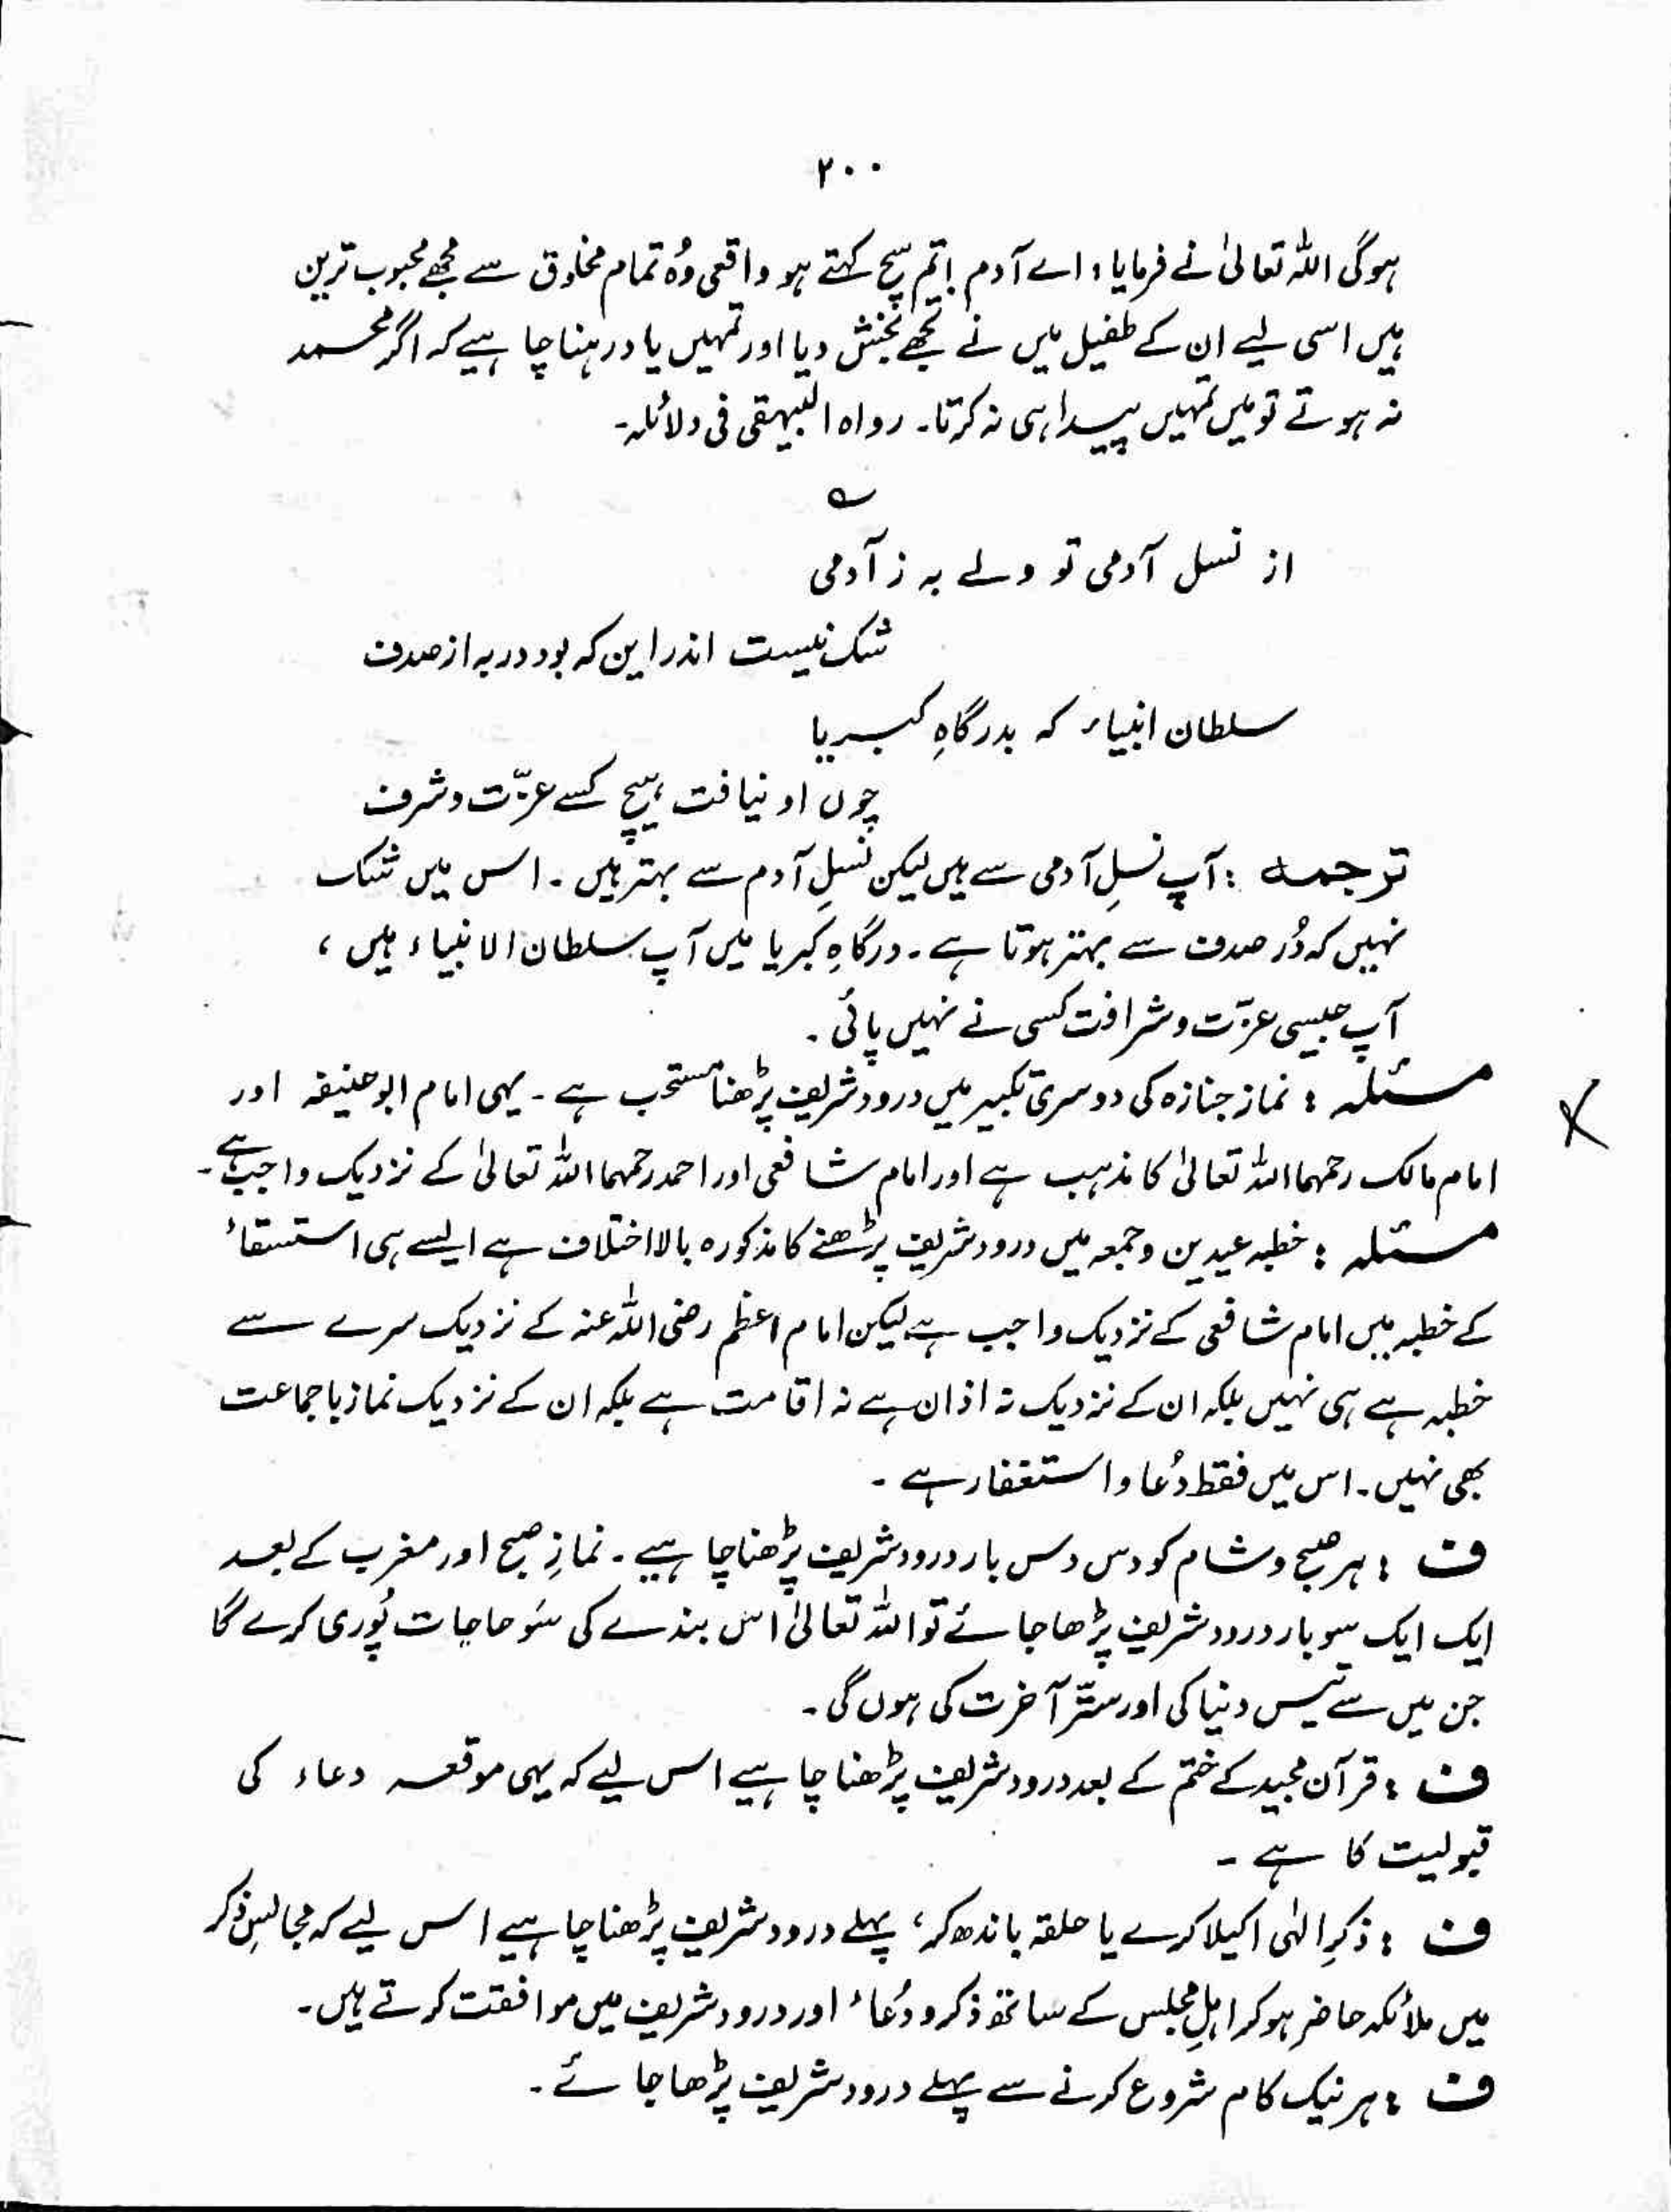 ۲۰۰
ہوگی اللہ تعالیٰ نے فرمایا، اے آدم! تم سچ کہتے ہو واقعی وُہ تمام مخلوق سے مجھے محبوب ترین
ہیں اسی لیے ان کے طفیل میں نے تجھے بخش دیا اور تمہیں یاد رہنا چاہیے کہ اگر محمد
نہ ہوتے تو میں تمہیں پیدا ہی نہ کرتا۔ رواہ البیہقی فی دلائلہ۔
؎
از نسل آدمی تو ولے بہ ز آدمی
شک نیست اندر این کہ بود در بہ از صدف
سلطان انبیاء کہ بدرگاہِ کبریا
چوں او نیافت ہیچ کسے عزّت و شرف
ترجمہ : آپ نسلِ آدمی سے ہیں لیکن نسلِ آدم سے بہتر ہیں۔ اس میں شک
نہیں کہ دُر صدف سے بہتر ہوتا ہے۔ درگاہِ کبریا میں آپ سلطان الانبیاء ہیں،
آپ جیسی عزّت و شرافت کسی نے نہیں پائی۔
مسئلہ : نماز جنازہ کی دوسری تکبیر میں درود شریف پڑھنا مستحب ہے۔ یہی امام ابوحنیفہ اور
امام مالک رحمہما اللہ تعالیٰ کا مذہب ہے اور امام شافعی اور احمد رحمہما اللہ تعالیٰ کے نزدیک واجب ہے۔
مسئلہ : خطبہ عیدین و جمعہ میں درود شریف پڑھنے کا مذکورہ بالا اختلاف ہے ایسے ہی استسقاء
کے خطبہ میں امام شافعی کے نزدیک واجب ہے لیکن امام اعظم رضی اللہ عنہ کے نزدیک سرے سے
خطبہ ہے ہی نہیں بلکہ ان کے نزدیک نہ اذان ہے نہ اقامت ہے بلکہ ان کے نزدیک نماز باجماعت
بھی نہیں۔ اس میں فقط دُعا و استغفار ہے۔
ف : ہر صبح و شام کو دس دس بار درود شریف پڑھنا چاہیے۔ نمازِ صبح اور مغرب کے بعد
ایک ایک سو بار درود شریف پڑھا جائے تو اللہ تعالیٰ اس بندے کی سَو حاجات پُوری کرے گا
جن میں سے تیس دنیا کی اور ستّر آخرت کی ہوں گی۔
ف : قرآن مجید کے ختم کے بعد درود شریف پڑھنا چاہیے اس لیے کہ یہی موقعہ دعاء کی
قبولیت کا ہے۔
ف : ذکرِ الہٰی اکیلا کرے یا حلقہ باندھ کر، پہلے درود شریف پڑھنا چاہیے اس لیے کہ مجالسِ ذکر
میں ملائکہ حاضر ہو کر اہلِ مجلس کے ساتھ ذکر و دُعاء اور درود شریف میں موافقت کرتے ہیں۔
ف : ہر نیک کام شروع کرنے سے پہلے درود شریف پڑھا جائے۔